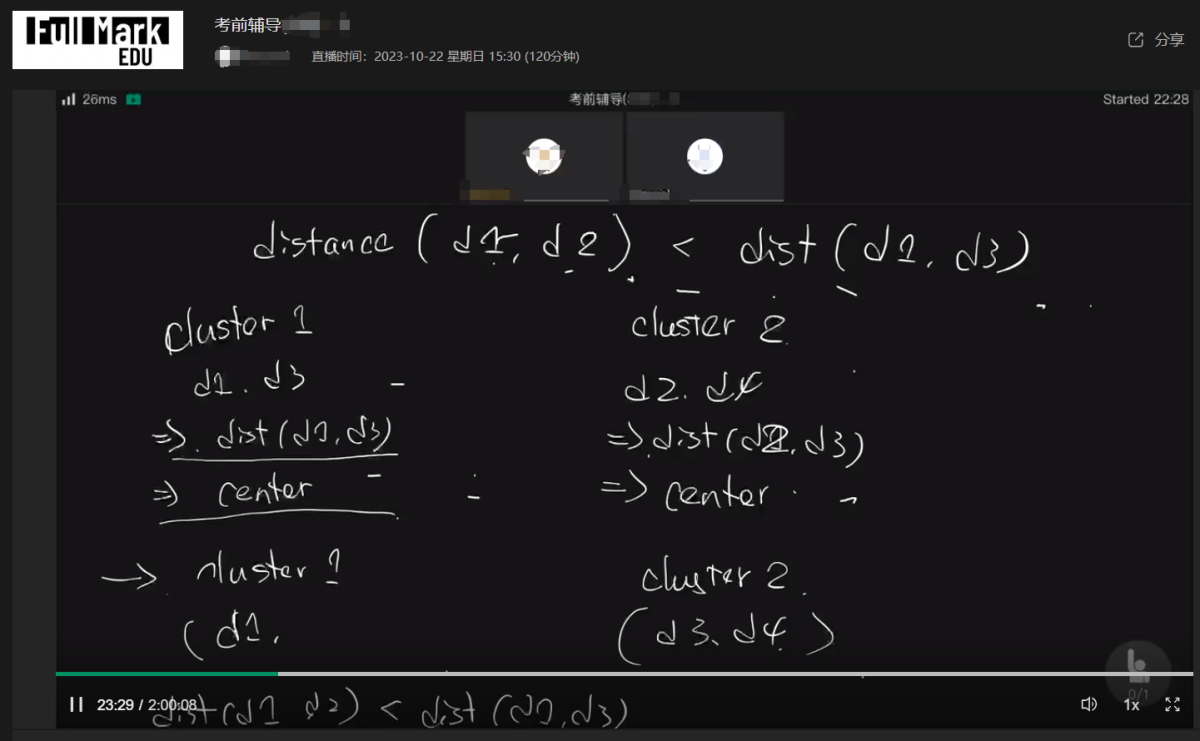 Full Mark
EDU
考前辅导
直播时间：2023-10-22 星期日 15:30 (120分钟)
分享
26ms
考前辅导(
Started 22:28
distance (d1, d2) < dist (d1, d3)
cluster 1
cluster 2
d1. d3
d2. d4
=> dist (d1, d3)
=> dist (d2, d3)
=> center
=> center
→ cluster 1
cluster 2
(d1,
(d3, d4)
0/1
23:29 / 2:00:08
1x
dist (d1 d2) < dist (d1, d3)